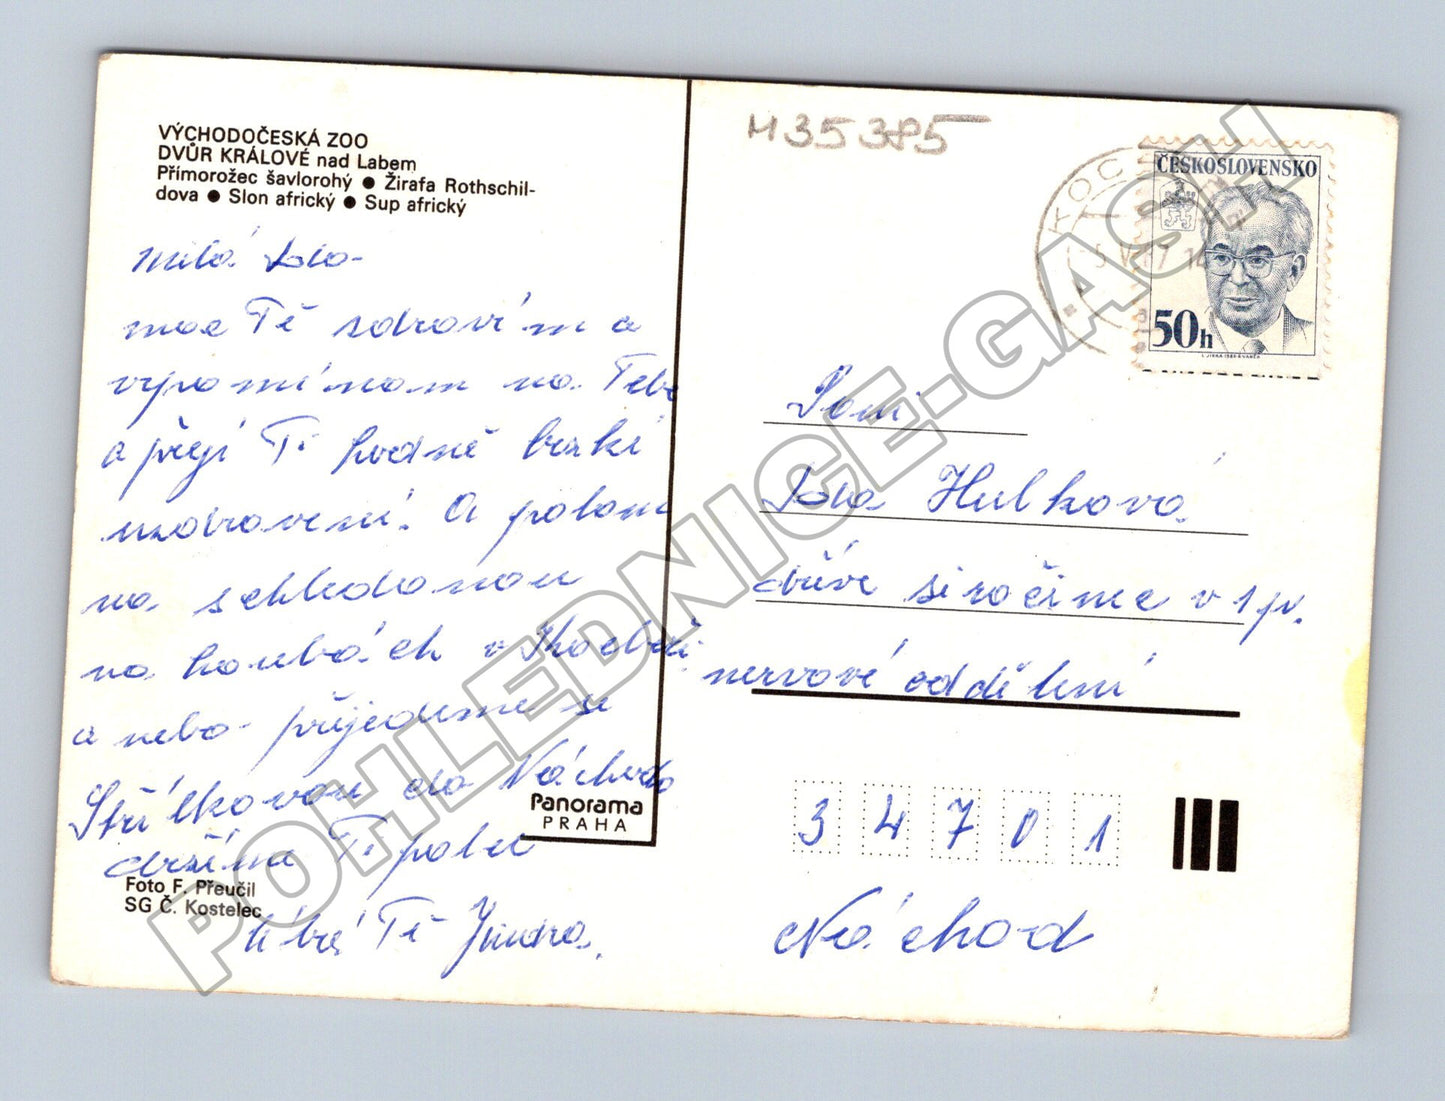 VÝCHODOČESKÁ ZOO
DVŮR KRÁLOVÉ nad Labem
Přímorožec šavlorohý ● Žirafa Rothschil-
dova ● Slon africký ● Sup africký
Milá
moc Tě zdravím a
vzpomínám na Tebe
a přeji Ti hodně brzké
uzdravení. A potom
na shledanou
na houbách v
a nebo přijedeme se
Střílkovou do Náchoda
držíme Ti palec
líbá Tě Jindra.
Panorama
PRAHA
Foto F. Přeučil
SG Č. Kostelec
M35385
ČESKOSLOVENSKO
50h
Paní
Hulková
nervové oddělení
3 4 7 0 1
Náchod
POHLEDNICE-GASH